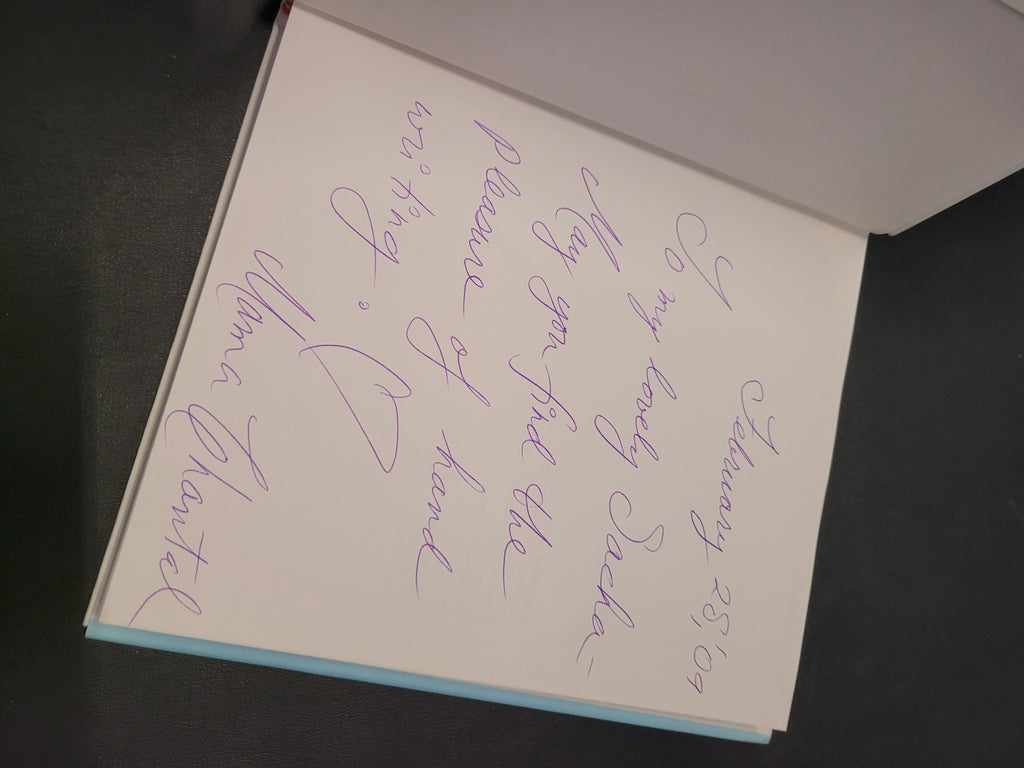 February 25, '09
To my lovely Sacha -
May you find the
pleasure of hand
writing.
Mama Chantal